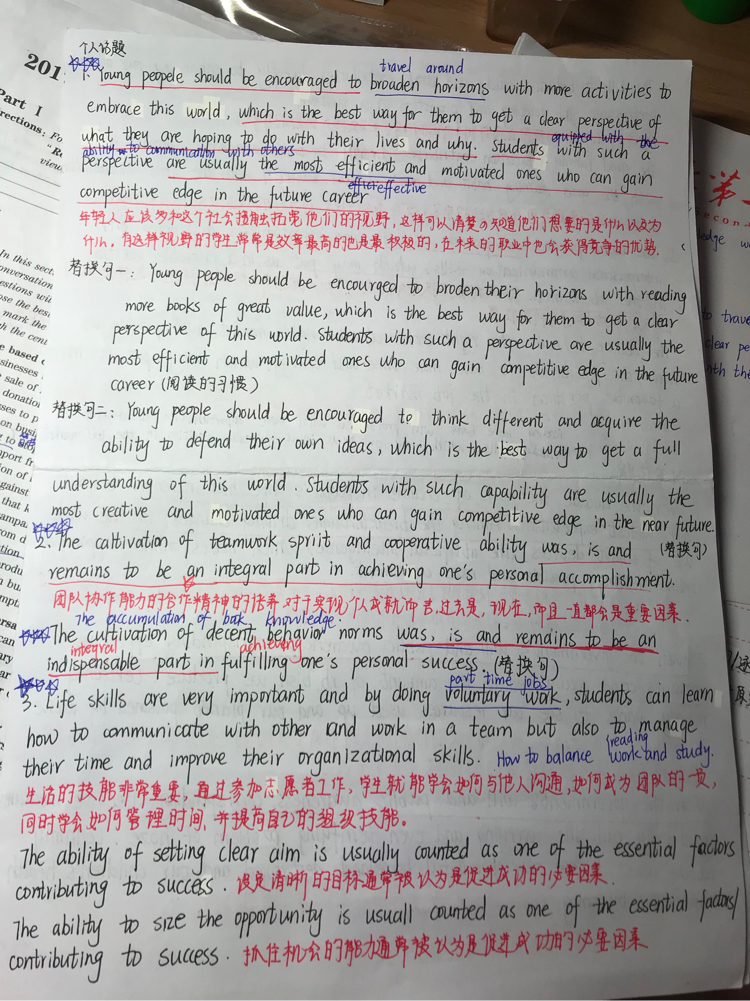 个人话题
travel around
1. Young peopele should be encouraged to broaden horizons with more activities to
embrace this world, which is the best way for them to get a clear perspective of
what they are hoping to do with their lives and why. Students with such a
equipped with the
ability to communication with others
perspective are usually the most efficient and motivated ones who can gain
competitive edge in the future career
effective
年轻人应该多和这个社会接触去拓宽他们的视野,这样可以清楚的知道他们想要的是什么以及为
什么,有这样视野的学生常常是效率最高的也是最积极的,在未来的职业中也会获得竞争的优势.
替换句一: Young people should be encourged to broden their horizons with reading
more books of great value, which is the best way for them to get a clear
perspective of this world. Students with such a perspective are usually the
most efficient and motivated ones who can gain competitive edge in the future
career (阅读的习惯)
替换句二: Young people should be encouraged to think different and acquire the
ability to defend their own ideas, which is the best way to get a full
understanding of this world. Students with such capability are usually the
most creative and motivated ones who can gain competitive edge in the near future.
2. The caltivation of teamwork spriit and cooperative ability was, is and (替换句)
remains to be an integral part in achieving one's personal accomplishment.
团队协作能力的合作精神的培养对于实现个人成就而言,过去是,现在,而且一直都会是重要因素.
The accumulation of bak knowledge.
The cultivation of decent behavior norms was, is and remains to be an
integral achieving
indispensable part in fulfilling one's personal success. (替换句)
part time jobs
3. Life skills are very important and by doing voluntary work, students can learn
how to communicate with other and work in a team but also to manage
reading
their time and improve their organizational skills. How to balance work and study.
生活的技能非常重要,通过参加志愿者工作,学生就能学会如何与他人沟通,如何成为团队的一员,
同时学会如何管理时间,并提高自己的组织技能。
The ability of setting clear aim is usually counted as one of the essential factors
contributing to success. 设定清晰的目标通常被认为是促进成功的必要因素.
The ability to size the opportunity is usuall counted as one of the essential factors
contributing to success. 抓住机会的能力通常被认为是促进成功的必要因素
201
Part I
In this sect